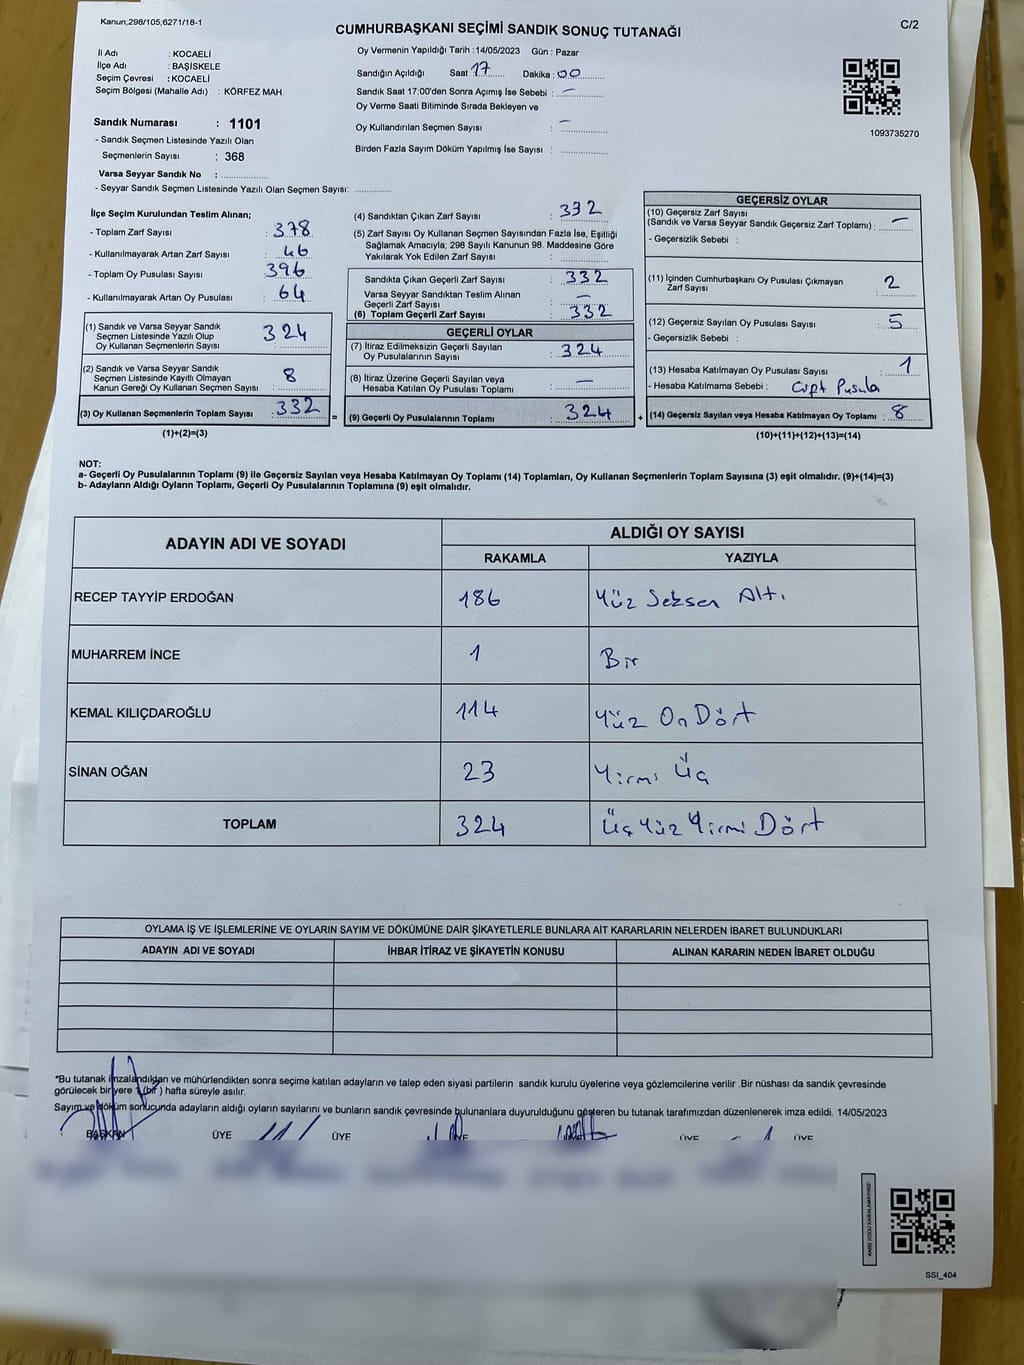 Kanun;298/105;6271/18-1
C/2
CUMHURBAŞKANI SEÇİMİ SANDIK SONUÇ TUTANAĞI
İl Adı : KOCAELİ
İlçe Adı : BAŞİSKELE
Seçim Çevresi : KOCAELİ
Seçim Bölgesi (Mahalle Adı) : KÖRFEZ MAH.
Sandık Numarası : 1101
- Sandık Seçmen Listesinde Yazılı Olan
Seçmenlerin Sayısı : 368
Varsa Seyyar Sandık No :
- Seyyar Sandık Seçmen Listesinde Yazılı Olan Seçmen Sayısı:
Oy Vermenin Yapıldığı Tarih : 14/05/2023 Gün : Pazar
Sandığın Açıldığı Saat 17 Dakika : 00
Sandık Saat 17:00'den Sonra Açımış İse Sebebi : -
Oy Verme Saati Bitiminde Sırada Bekleyen ve
Oy Kullandırılan Seçmen Sayısı : -
Birden Fazla Sayım Döküm Yapılmış İse Sayısı :
1093735270
İlçe Seçim Kurulundan Teslim Alınan;
- Toplam Zarf Sayısı : 378
- Kullanılmayarak Artan Zarf Sayısı : 46
- Toplam Oy Pusulası Sayısı : 396
- Kullanılmayarak Artan Oy Pusulası : 64
(1) Sandık ve Varsa Seyyar Sandık
Seçmen Listesinde Yazılı Olup
Oy Kullanan Seçmenlerin Sayısı : 324
(2) Sandık ve Varsa Seyyar Sandık
Seçmen Listesinde Kayıtlı Olmayan
Kanun Gereği Oy Kullanan Seçmen Sayısı : 8
(3) Oy Kullanan Seçmenlerin Toplam Sayısı : 332
(1)+(2)=(3)
=
(4) Sandıktan Çıkan Zarf Sayısı : 332
(5) Zarf Sayısı Oy Kullanan Seçmen Sayısından Fazla İse, Eşitliği
Sağlamak Amacıyla; 298 Sayılı Kanunun 98. Maddesine Göre
Yakılarak Yok Edilen Zarf Sayısı :
Sandıkta Çıkan Geçerli Zarf Sayısı : 332
Varsa Seyyar Sandıktan Teslim Alınan
Geçerli Zarf Sayısı : -
(6) Toplam Geçerli Zarf Sayısı : 332
GEÇERLİ OYLAR
(7) İtiraz Edilmeksizin Geçerli Sayılan
Oy Pusulalarının Sayısı : 324
(8) İtiraz Üzerine Geçerli Sayılan veya
Hesaba Katılan Oy Pusulası Toplamı : -
(9) Geçerli Oy Pusulalarının Toplamı : 324
+
GEÇERSİZ OYLAR
(10) Geçersiz Zarf Sayısı
(Sandık ve Varsa Seyyar Sandık Geçersiz Zarf Toplamı) : -
- Geçersizlik Sebebi :
(11) İçinden Cumhurbaşkanı Oy Pusulası Çıkmayan
Zarf Sayısı : 2
(12) Geçersiz Sayılan Oy Pusulası Sayısı : 5
- Geçersizlik Sebebi :
(13) Hesaba Katılmayan Oy Pusulası Sayısı : 1
- Hesaba Katılmama Sebebi : Çift Pusula
(14) Geçersiz Sayılan veya Hesaba Katılmayan Oy Toplamı : 8
(10)+(11)+(12)+(13)=(14)
NOT:
a- Geçerli Oy Pusulalarının Toplamı (9) ile Geçersiz Sayılan veya Hesaba Katılmayan Oy Toplamı (14) Toplamları, Oy Kullanan Seçmenlerin Toplam Sayısına (3) eşit olmalıdır. (9)+(14)=(3)
b- Adayların Aldığı Oyların Toplamı, Geçerli Oy Pusulalarının Toplamına (9) eşit olmalıdır.
ADAYIN ADI VE SOYADI ALDIĞI OY SAYISI
RAKAMLA YAZIYLA
RECEP TAYYİP ERDOĞAN 186 Yüz Seksen Altı
MUHARREM İNCE 1 Bir
KEMAL KILIÇDAROĞLU 114 Yüz On Dört
SİNAN OĞAN 23 Yirmi Üç
TOPLAM 324 Üç Yüz Yirmi Dört
OYLAMA İŞ VE İŞLEMLERİNE VE OYLARIN SAYIM VE DÖKÜMÜNE DAİR ŞİKAYETLERLE BUNLARA AİT KARARLARIN NELERDEN İBARET BULUNDUKLARI
ADAYIN ADI VE SOYADI İHBAR İTİRAZ VE ŞİKAYETİN KONUSU ALINAN KARARIN NEDEN İBARET OLDUĞU
*Bu tutanak imzalandıktan ve mühürlendikten sonra seçime katılan adayların ve talep eden siyasi partilerin sandık kurulu üyelerine veya gözlemcilerine verilir .Bir nüshası da sandık çevresinde
görülecek bir yere 1 (bir ) hafta süreyle asılır.
Sayım ve döküm sonucunda adayların aldığı oyların sayılarını ve bunların sandık çevresinde bulunanlara duyurulduğunu gösteren bu tutanak tarafımızdan düzenlenerek imza edildi. 14/05/2023
BAŞKAN ÜYE ÜYE ÜYE ÜYE ÜYE
KARE KODU KARALAMAYINIZ!
SSI_404